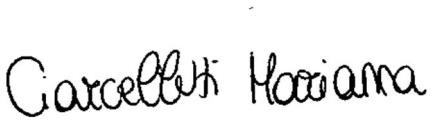 Ciarcelletti Marianna